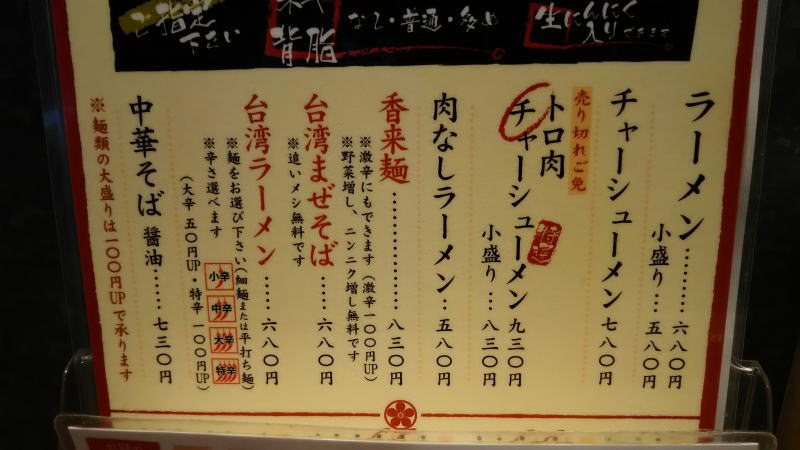 ご指定
下さい
背脂
なし・普通・多め
生にんにく
入りできます
ラーメン………六八〇円
小盛り…五八〇円
チャーシューメン 七八〇円
売り切れご免
トロ肉
チャーシューメン 九三〇円
特選
小盛り…八三〇円
肉なしラーメン‥五八〇円
香来麺…………八三〇円
※激辛にもできます(激辛一〇〇円UP)
※野菜増し、ニンニク増し無料です
台湾まぜそば……六八〇円
※追いメシ無料です
台湾ラーメン……六八〇円
※麺をお選び下さい(細麺または平打ち麺)
※辛さ選べます
小辛
中辛
大辛
特辛
(大辛 五〇円UP・特辛 一〇〇円UP)
中華そば 醤油……七三〇円
※麺類の大盛りは一〇〇円UPで承ります